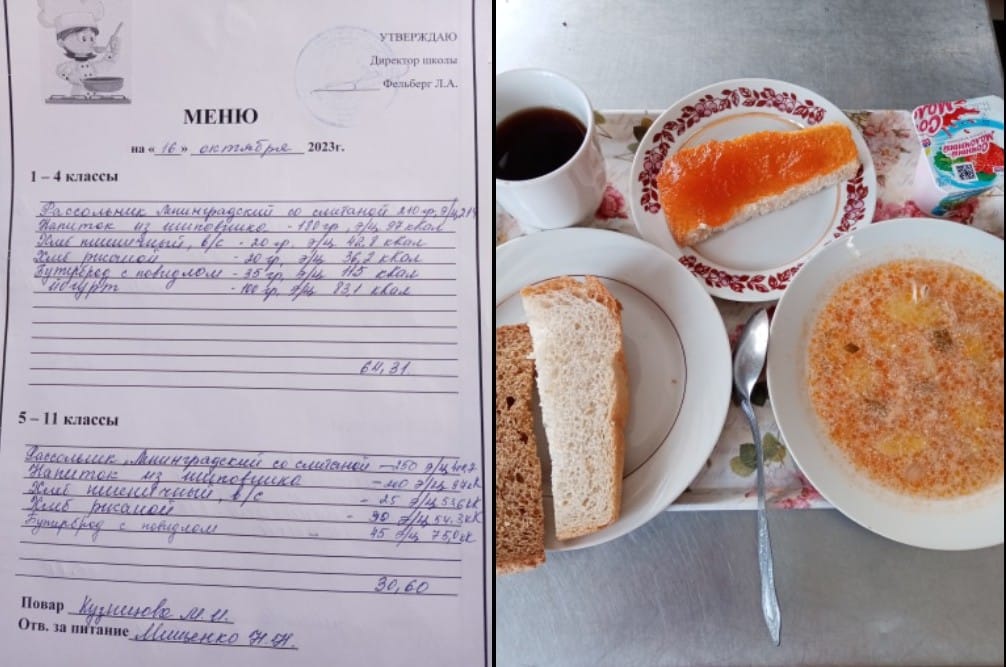 УТВЕРЖДАЮ
Директор школы
Фельберг Л.А.
МЕНЮ
на « 16 » октября 2023г.
1 – 4 классы
Рассольник Ленинградский со сметаной 210 гр, э/ц
Напиток из шиповника - 180 гр, э/ц 97 квал
Хлеб пшеничный, в/с - 20 гр, э/ц 42,8 квал
Хлеб ржаной - 20 гр, э/ц 36,2 квал
Бутерброд с повидлом - 35 гр, э/ц 115 квал
йогурт - 100 гр, э/ц 83,1 квал
64,31
5 – 11 классы
Рассольник Ленинградский со сметаной – 250 э/ц
Напиток из шиповника э/ц
Хлеб пшеничный, в/с - 25 э/ц 53,6 кК
Хлеб ржаной - 30 э/ц 54,3 кК
Бутерброд с повидлом 45 э/ц
30,60
Повар Кузнецова М.И.
Отв. за питание Мищенко Н.Н.